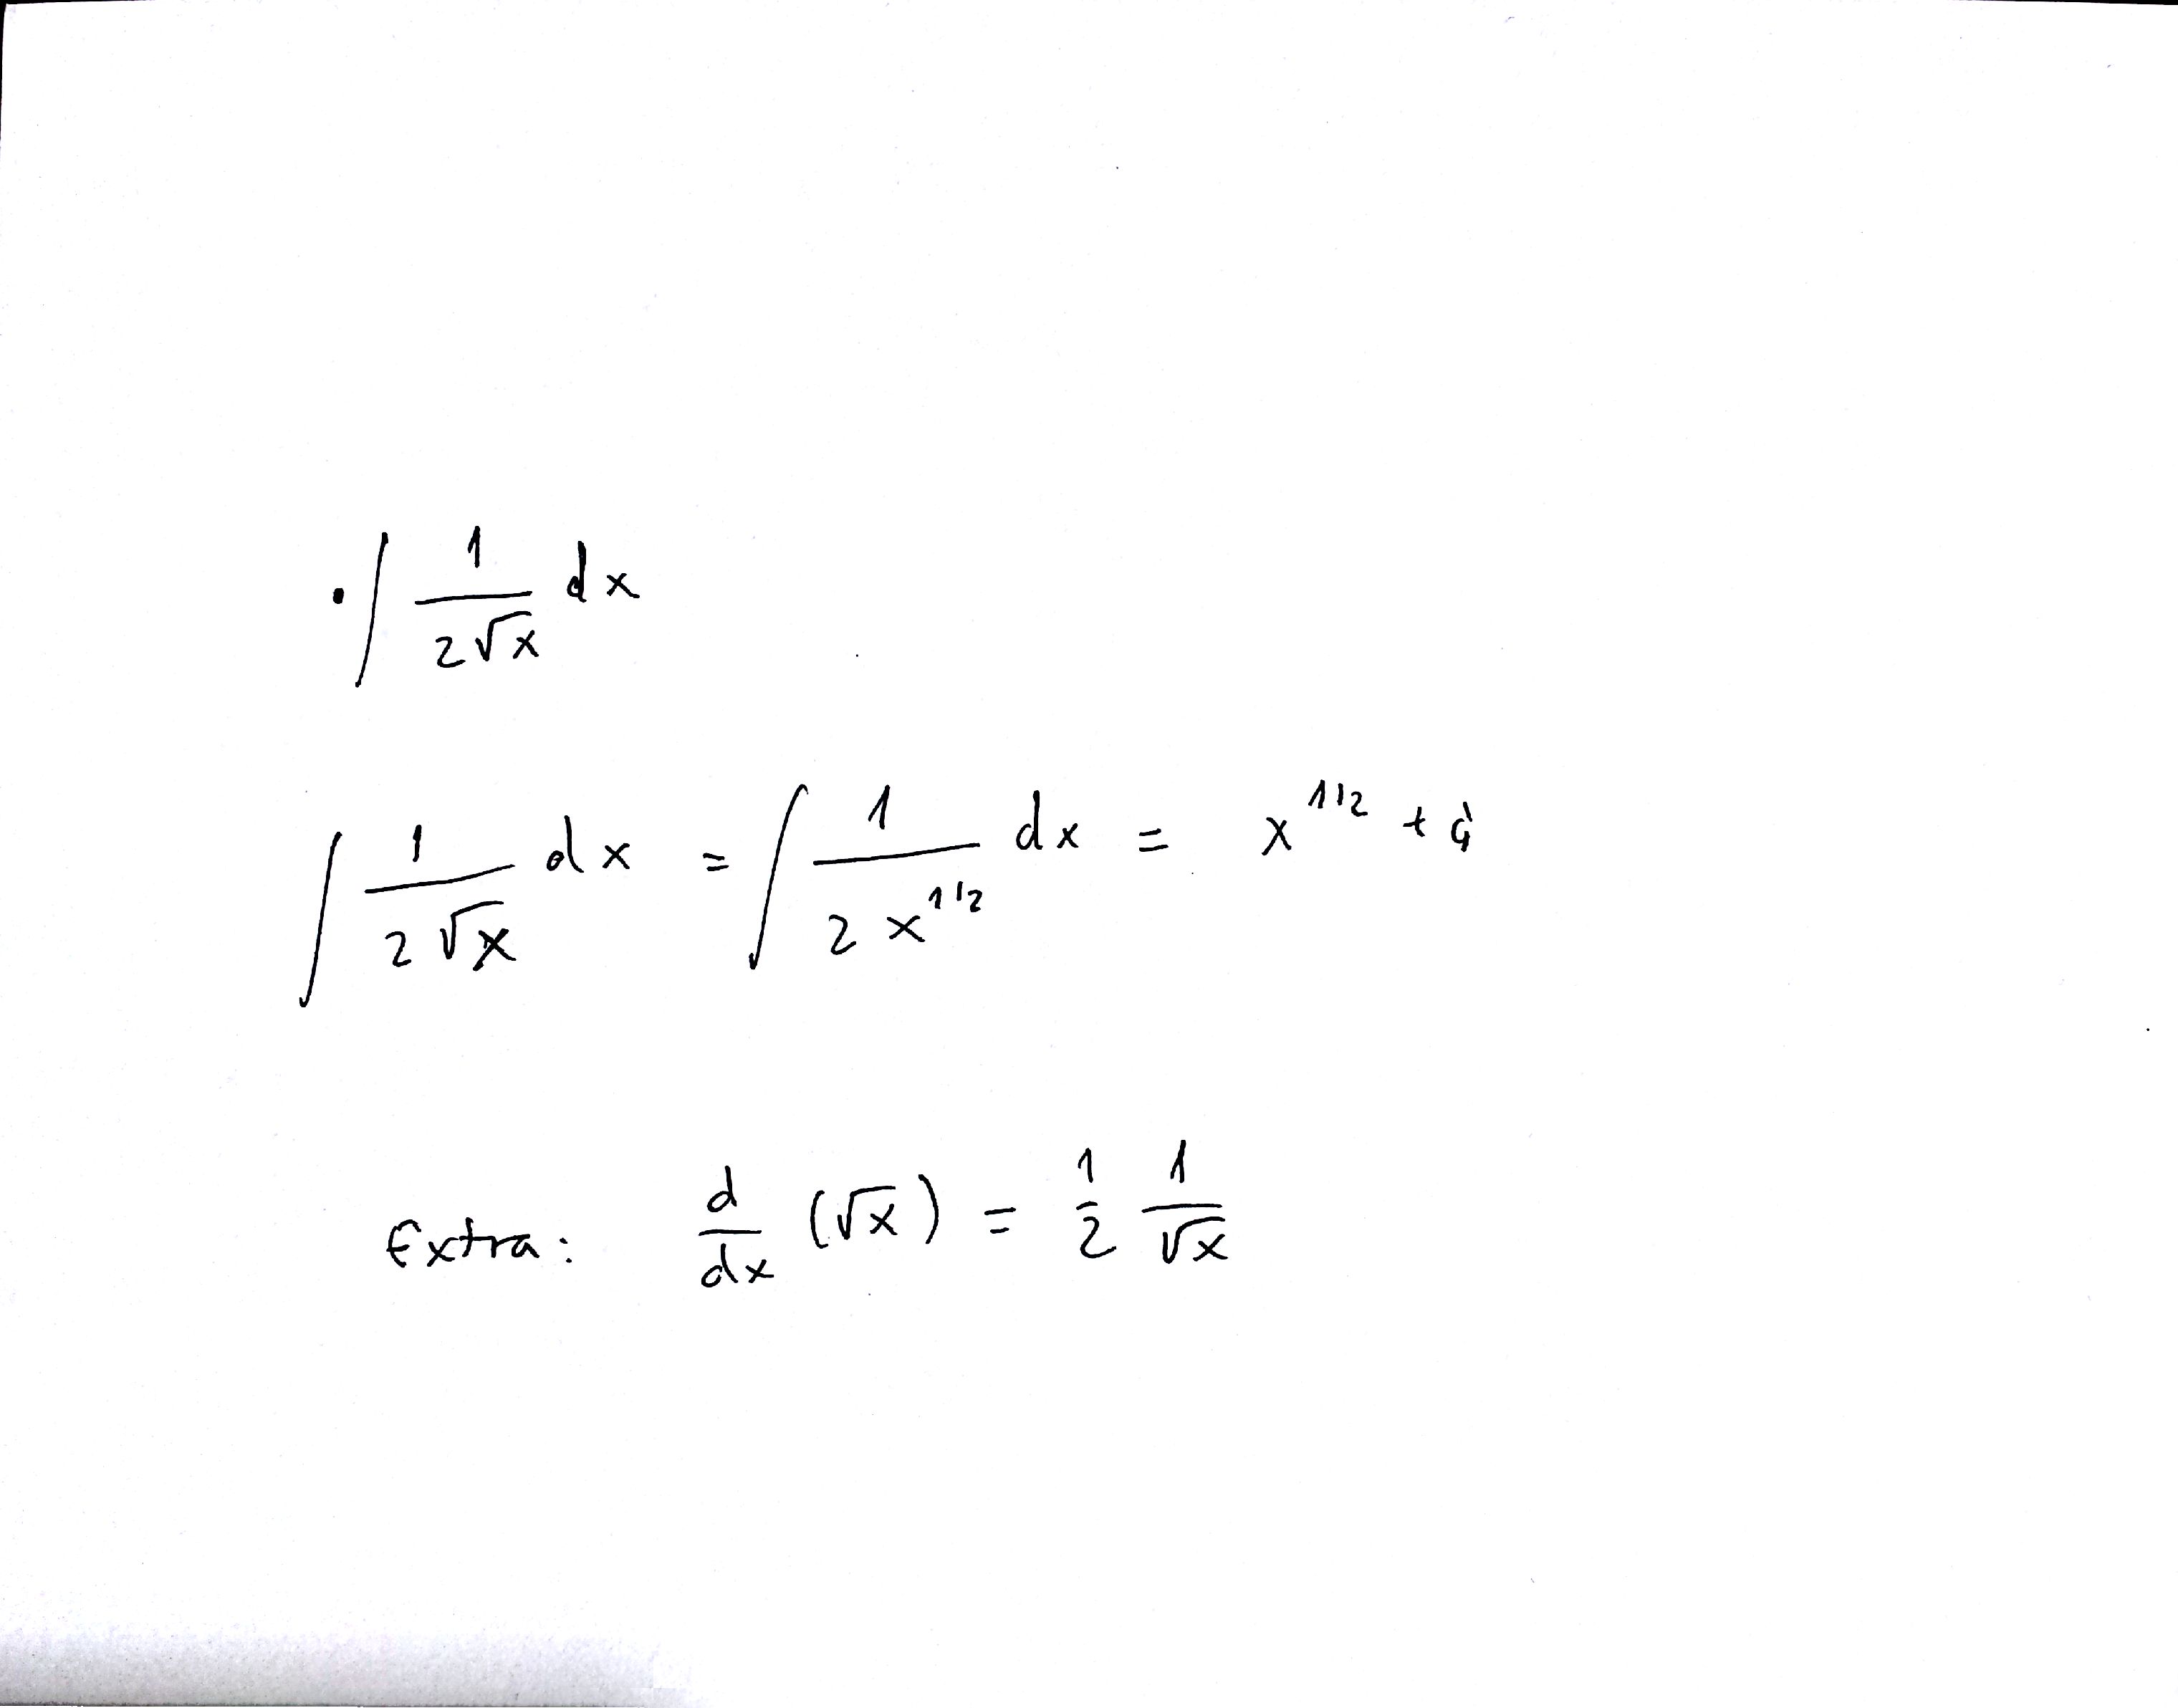 • ∫ 1/(2√x) dx
∫ 1/(2√x) dx = ∫ 1/(2x^{1/2}) dx = x^{1/2} +
Extra: d/dx (√x) = 1/2 1/√x